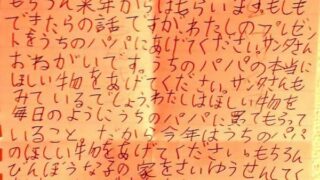 もちろん来年からはもらいます。もしも
できたらの話ですが、わたしのプレゼン
トをうちのパパにあげてください。サンタさん
おねがいです。うちのパパの本当に
ほしい物をあげてください。サンタさんも
みているでしょう。わたしはほしい物を
毎日のようにうちのパパに買てもらって
いること。だから今年はうちのパパ
のほしい物をあげてください。もちろん
びんぼうな子の家をさいゆうせんしてく